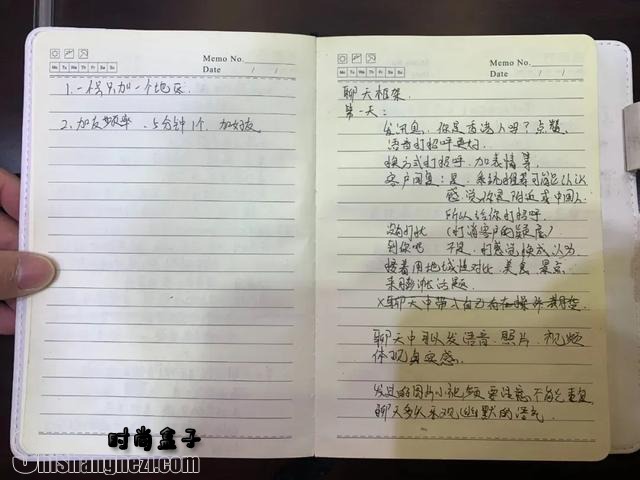 Memo No.
Mo Tu We Th Fr Sa Su
Date / /
1. 一号只加一个地区.
2. 加友频率、5分钟1个 加好友
Memo No.
Mo Tu We Th Fr Sa Su
Date / /
聊天框架.
第一天:
发讯息、你是香港人吗? 点赞.
语音打招呼更好.
换方式打招呼. 加表情等.
客户回复: 是. 系统推荐可能认识
感觉你是附近或中国人.
所以给你打招呼.
(打消客户的疑虑)
到你吧 不是.
接着用地域性对比. 美食. 景点.
来膨胀话题.
X 聊天中带入自己
聊天中可以发语音. 照片. 视频
体现真实感.
发过的图片小视频要注意不能重复
聊天多以乐观、幽默的语气
时尚盒子
Ohishanghezi.com